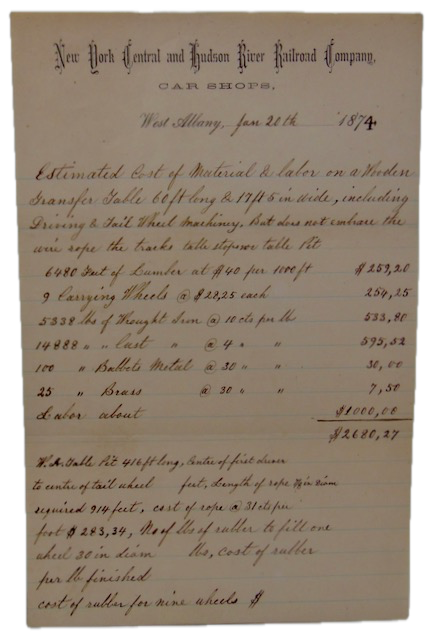 New York Central and Hudson River Railroad Company,
CAR SHOPS,
West Albany, Jan 20th 1874
Estimated Cost of Material & labor on a Wooden
Transfer Table 60 ft long & 17 ft 5 in wide, including
Driving & Tail Wheel Machinery, But does not embrace the
wire rope the tracks table stops or table Pit
6480 Feet of Lumber at $40 per 1000 ft $259,20
9 Carrying Wheels @ $28,25 each 254,25
5338 lbs of Wrought Iron @ 10 cts per lb 533,80
14888 " " Cast " @ 4 " " 595,52
100 " Babbets Metal @ 30 " " 30,00
25 " Brass @ 30 " " 7,50
Labor about $1000,00
$2680,27
W.A. Table Pit 416 ft long, Centre of first driver
to centre of tail wheel feet, Length of rope in diam
required 914 feet, cost of rope @ 31 cts per
foot $283,34, No of lbs of rubber to fill one
wheel 30 in diam lbs, cost of rubber
per lb finished
cost of rubber for nine wheels $